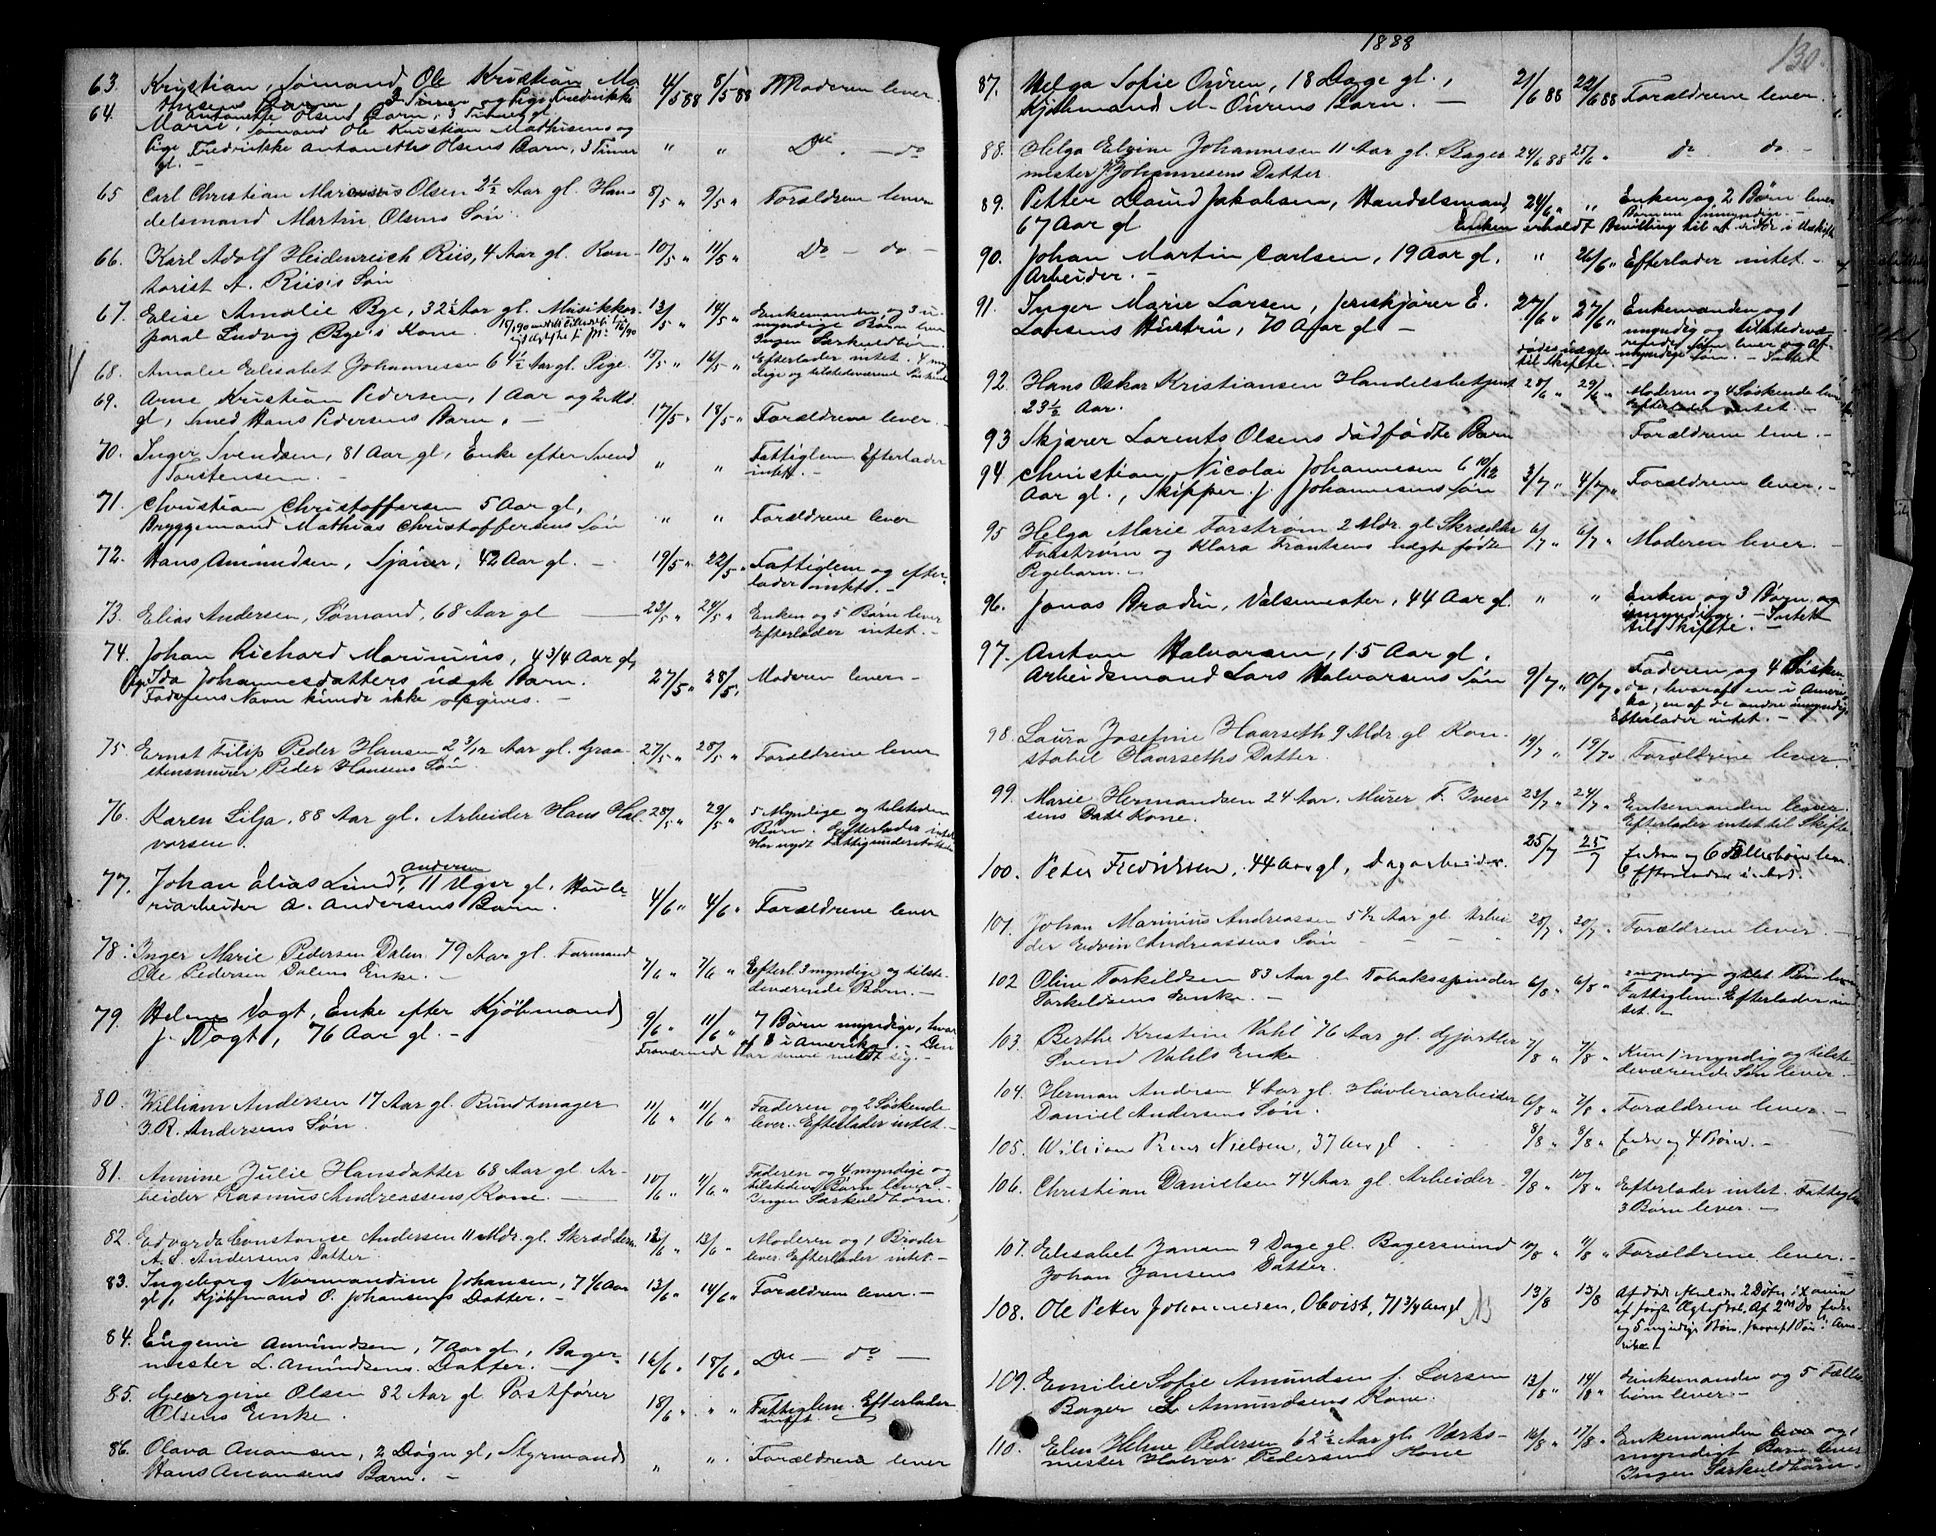 63. Kristian, Sømand Ole Kristian Ma- 4/5 88 8/5 88 Moderen lever.
thisens Barn, 3 Timer og Pige Fredrikke
64. Antonette Olsens Barn, 3 Timer gl.
Marie, Sømand Ole Kristian Mathisens og
Pige Fredrikke Antonette Olsens Barn, 3 Timer " " Do — do
gl. —
65 Carl Christian Marensius Olsen 2 1/2 Aar gl. Han- 8/5 " 9/5 " Forældrene lever
delsmand Martin Olsens Søn.
66. Karl Adolf Heidenreich Riis, 4 Aar gl. Kon- 10/5 " 11/5 " Do — do —
torist A. Riis's Søn
67. Elise Amalie Bye, 32 1/2 Aar gl. Musikkor- 13/5 " 14/5 " Enkemanden og 3 u-
poral Ludvig Bye's Kone. myndige Børn lever
Ingen Særkuldbørn.
68. Amalie Elisabet Johannessen 6 4 1/2 Aar gl. Pige. 15/5 " 16/5 " Efterlader intet. 4 myn-
dige og tilstedeværende Søskende
69. Arne Kristian Pedersen, 1 Aar og 2 Md.
gl, Smed Hans Pedersens Barn. — 17/5 " 18/5 " Forældrene lever. —
70. Inger Svendsen, 81 Aar gl, Enke efter Svend " " Fattiglem. Efterlader
Torstensen. — intet. —
71. Christian Christoffersen 5 Aar gl,
Bryggemand Mathias Christoffersens Søn " " Forældrene lever
72. Hans Amundsen, Sjauer, 42 Aar gl. — 19/5 " 22/5 " Fattiglem og efter-
lader intet. —
73. Elias Andersen, Sømand, 68 Aar gl — 23/5 " 24/5 " Enken og 5 Børn lever
Efterlader intet. —
74. Johan Richard Marinius, 4 3/4 Aar gl,
Pige Ida Johannesdatters uægt Barn. 27/5 " 28/5 " Moderen lever —
Faderens Navn kunde ikke opgives. —
75 Ernst Filip Peder Hansen 2 3/12 Aar gl. Graa- 27/5 " 28/5 " Forældrene lever
stensmurer Peder Hansens Søn
76. Karen Lilja, 88 Aar gl. Arbeider Hans Hal- 28/5 " 29/5 " 5 Myndige og tilstedev
vorsen Børn. Efterlader intet
Har nydt Fattigunderstøttelse
Andersen
77. Johan Elias Lund, 11 Uger gl, Høvle-
riarbeider A. Andersens Barn. 4/6 " 4/6 " Forældrene lever
78. Inger Marie Pedersen Dalen 79 Aar gl. Formand
Ole Pedersen Dalens Enke. — 7/6 " 7/6 " Efterl. 3 myndige og tilste-
deværende Børn. —
79. Helene Vogt, Enke efter Kjøbmand
J. Vogt, 76 Aar gl. — 9/6 " 11/6 " 7 Børn myndige, hvor-
af 3 i Amerika. — Den
Fraværende har senere meldt sig. —
80. William Andersen 17 Aar gl. Bundtmager 11/6 " 11/6 " Faderen og 2 Søskende
J. R. Andersens Søn. lever. Efterlader intet. —
81. Annine Julie Hansdatter 68 Aar gl Ar- 10/6 " 11/6 " Faderen og 4 myndige og
beider Rasmus Andreassens Kone. — tilstedev Børn lever —
Ingen Særkuldbørn.
82. Edvarda Constanse Andersen 11 Mdr. gl. Skrædderm. 12/6 " 13/6 " Moderen og 1 Broder
A. L. Andersens Datter. lever. Efterlader intet. —
83. Ingeborg Normandine Johansen, 7 1/6 Aar 13/6 " 14/6 " Forældrene lever. —
gl, Kjøbmand O. Johansens Datter. —
84. Eugenie Amundsen, 7 Aar gl, Bager-
mester L. Amundsens Datter. — 16/6 " 18/6 " Do — do —
85. Georgine Olsen 82 Aar gl Postfører 18/6 " " " Fattiglem. Efterlader
Olsens Enke. intet.
86. Olava Aronsen, 2 Døgn gl, Styrmand " " Forældrene lever
Hans Aronsens Barn. —
1888 130.
87. Helga Sofie Ouren, 18 Dage gl, 21/6 88 22/6 88 Forældrene lever.
Kjøbmand M. Ourens Barn. —
88. Helga Elvine Johannesen 11 Aar gl. Bager 24/6 88 25/6 " do. do. —
mester J. Johannesens Datter.
89. Petter Daniel Jakobsen, Handelsmand 24/6 " " Enken og 2 Børn lever
67 Aar gl Børnene umyndige. —
Enken erholdt Bevilling til at sidde i Uskifte
90. Johan Martin Carlsen, 19 Aar gl. " 26/6 " Efterlader intet. —
Arbeider. —
91. Inger Marie Larsen, Jernkjører E. 27/6 " 27/6 " Enkemanden og 1
Larsens Hustru, 70 Aar gl — myndig og tilstedevæ-
rende Søn lever
92. Hans Oskar Kristiansen Handelsbetjent 28/6 " 29/6 " Moderen og 4 Søskende lever
23 1/2 Aar. Efterlader intet. —
93 Skjærer Lorents Olsens dødfødte Barn Forældrene leve. —
94 Christian Nicolai Johannesen 6 10/12 3/7 " 4/7 " Forældrene lever. —
Aar gl., Skipper J. Johannesens Søn
95 Helga Marie Forstrøm 2 Mdr. gl Skrædder 6/7 " 6/7 " Moderen lever. —
Forstrøm og Klara Frantsens uægte fødte
Pigebarn. —
96. Jonas Brodin, Valsemester, 44 Aar gl. " " Enken og 3 Børn og
umyndige. — Intet
til Skifte. —
97. Anton Halvorsen, 15 Aar gl.
Arbeidsmand Lars Halvorsens Søn 9/7 " 10/7 " Faderen og 4 Søsken-
de, hvoraf en i Ameri-
ka, en af de andre umyndige
Efterlader intet. —
98. Laura Josefine Haarseth 9 Mdr. gl Kon- 19/7 " 19/7 " Forældrene lever.
stabel Haarseths Datter.
99. Marie Hermandsen 24 Aar. Murer F. Iver- 23/7 " 24/7 " Enkemanden lever
sens Kone. — Efterlader intet til Skifte
100. Peter Fredriksen, 44 Aar gl, Dagarbeider. 25/7 25/7 Enken og 6 Fællesbørn lever.
Efterlader intet.
101. Johan Marinius Andreassen 5 1/2 Aar gl. Arbei- 28/7 " 30/7 " Forældrene lever. —
der Edvin Andreassens Søn — — —
102 Oline Torkildsen 83 Aar gl Tobaksspinder 6/8 " 6/8 " myndige og tilst Børn lever
Torkildsens Enke. — Fattiglem. Efterlader in-
tet. —
103. Berthe Kristine Vahl 76 Aar gl. Gjørtler 7/8 " 7/8 " Kun 1 myndig og tilste-
Svend Vahls Enke deværende Søn lever. —
104. Herman Andersen 4 Aar gl. Høvleriarbeider 6/8 " 7/8 " Forældrene lever. —
Daniel Andersens Søn.
105. William Nielsen, 37 Aar gl 8/8 " 8/8 " Enke og 4 Børn. —
106. Christian Danielsen 74 Aar gl. Arbeider 9/8 " 10/8 " Efterlader intet. Fattiglem
3 Børn lever. —
107. Elisabet Jansen 9 Dage gl. Bagersvend 10/8 " 11/8 " Forældrene lever. —
Johan Jansens Datter.
108. Ole Peter Johannesen, 71 3/4 Aar gl NB 13/8 13/8
af første Ægteskab. Af 2det Do Enke
og 5 myndige Børn, hvoraf 1 Søn i Ame-
rika
109. Emilie Sofie Amundsen f. Larsen 13/8 " 14/8 " Enkemanden og 5 Fælles-
Bager L. Amundsens Kone. børn lever. —
110. Elen Helene Pedersen 62 1/2 Aar gl. Værks- 16/8 " 17/8 " Enkemanden lever og 1
mester Halvor Pedersens Kone myndigt Barn lever
Ingen Særkuldbørn. —